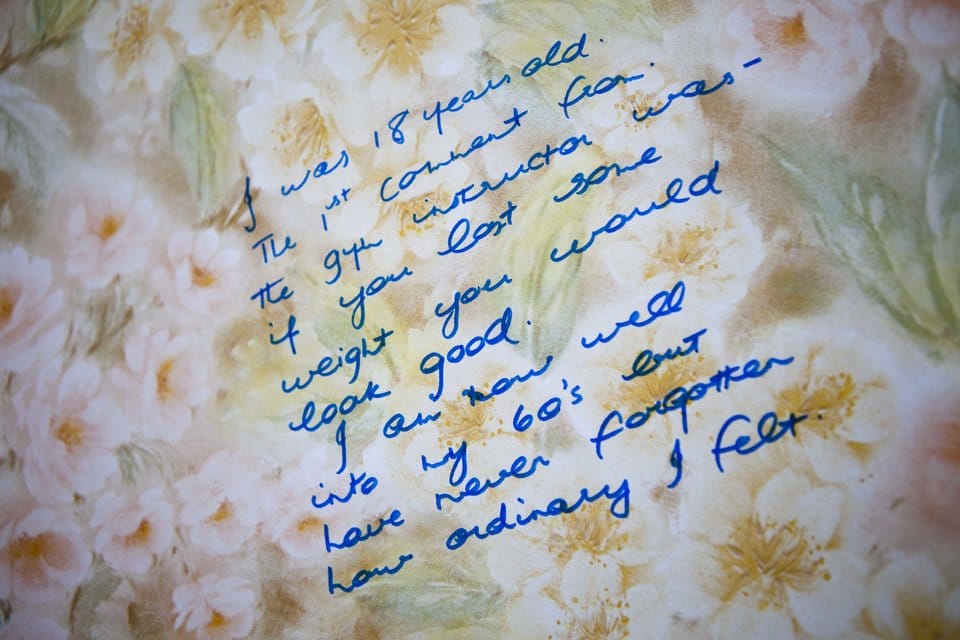 I was 18 years old.
The 1st comment from.
the gym instructor was -
if you lost some
weight you would
look good.
I am now well
into my 60's but
have never forgotten
how ordinary I felt.